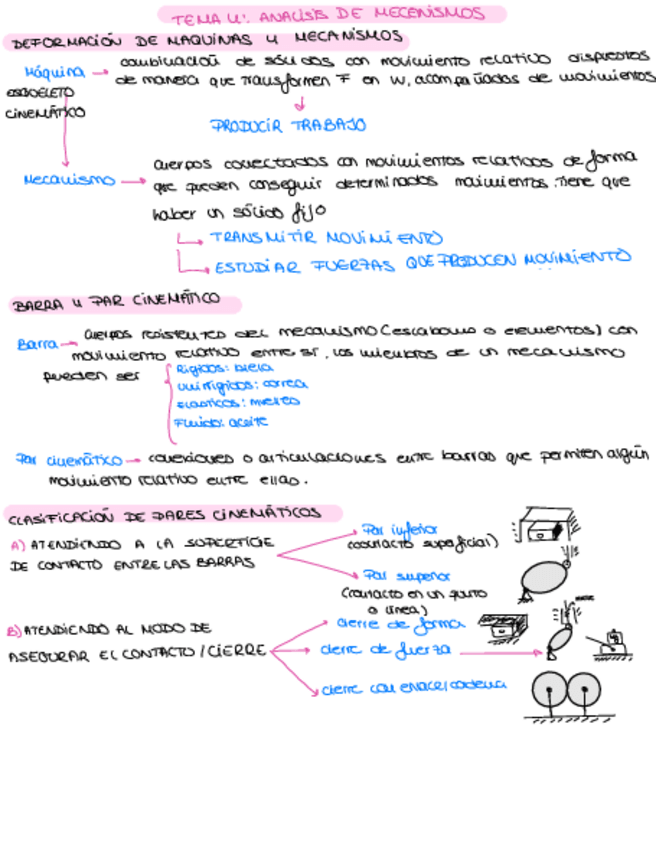 TEMA 4: ANALISIS DE MECENISMOS
DEFORMACIÓN DE MAQUINAS Y MECANISMOS
Máquina → combinación de sólidos con movimiento relativo dispuestos
de manera que transformen F en W, acompañados de movimientos
ESQUELETO
CINEMÁTICO
PRODUCIR TRABAJO
Mecanismo → cuerpos conectados con movimientos relativos de forma
que pueden conseguir determinados movimientos. Tiene que
haber un sólido fijo
TRANSMITIR MOVIMIENTO
ESTUDIAR FUERZAS QUE PRODUCEN MOVIMIENTO
BARRA Y PAR CINEMÁTICO
Barra → cuerpos resistentes del mecanismo (eslabones o elementos) con
movimiento relativo entre sí. Los miembros de un mecanismo
pueden ser
Rígidos: biela
Unirrígidos: correa
Elásticos: muelle
Fluido: aceite
Par cinemático → conexiones o articulaciones entre barras que permiten algún
movimiento relativo entre ellas.
CLASIFICACIÓN DE PARES CINEMÁTICOS
A) ATENDIENDO A LA SUPERFICIE
DE CONTACTO ENTRE LAS BARRAS
Par inferior
(contacto superficial)
Par superior
(contacto en un punto
o línea)
B) ATENDIENDO AL MODO DE
ASEGURAR EL CONTACTO / CIERRE
cierre de forma
cierre de fuerza
cierre con enlace/cadena